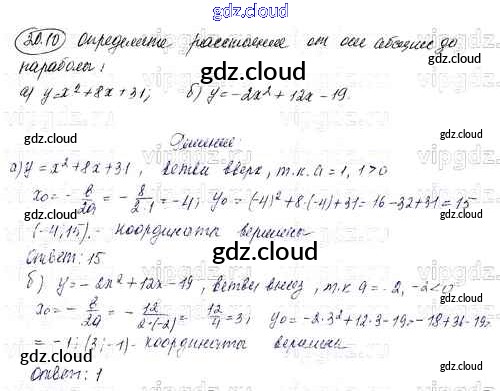 gdz.cloud
20.10 Определите расстояние от оси абсцисс до
параболы:
gdz.cloud
а) y=x²+8x+31; б) y=-2x²+12x-19.
gdz.cloud
gdz.cloud
Решение:
gdz.cloud
а) y=x²+8x+31, ветви вверх, т.к. a=1, 1>0
x₀=-b/2a=-8/2·1=-4; y₀=(-4)²+8·(-4)+31=16-32+31=15
(-4;15).- координаты вершины
gdz.cloud
Ответ: 15
б) y=-2x²+12x-19, ветви вниз, т.к. a=-2, -2<0
gdz.cloud
gdz.cloud
x₀=-b/2a=-12/2·(-2)=12/4=3; y₀=-2·3²+12·3-19=-18+36-19=
=-1; (3;-1)- координаты вершины
gdz.cloud
gdz.cloud
Ответ: 1